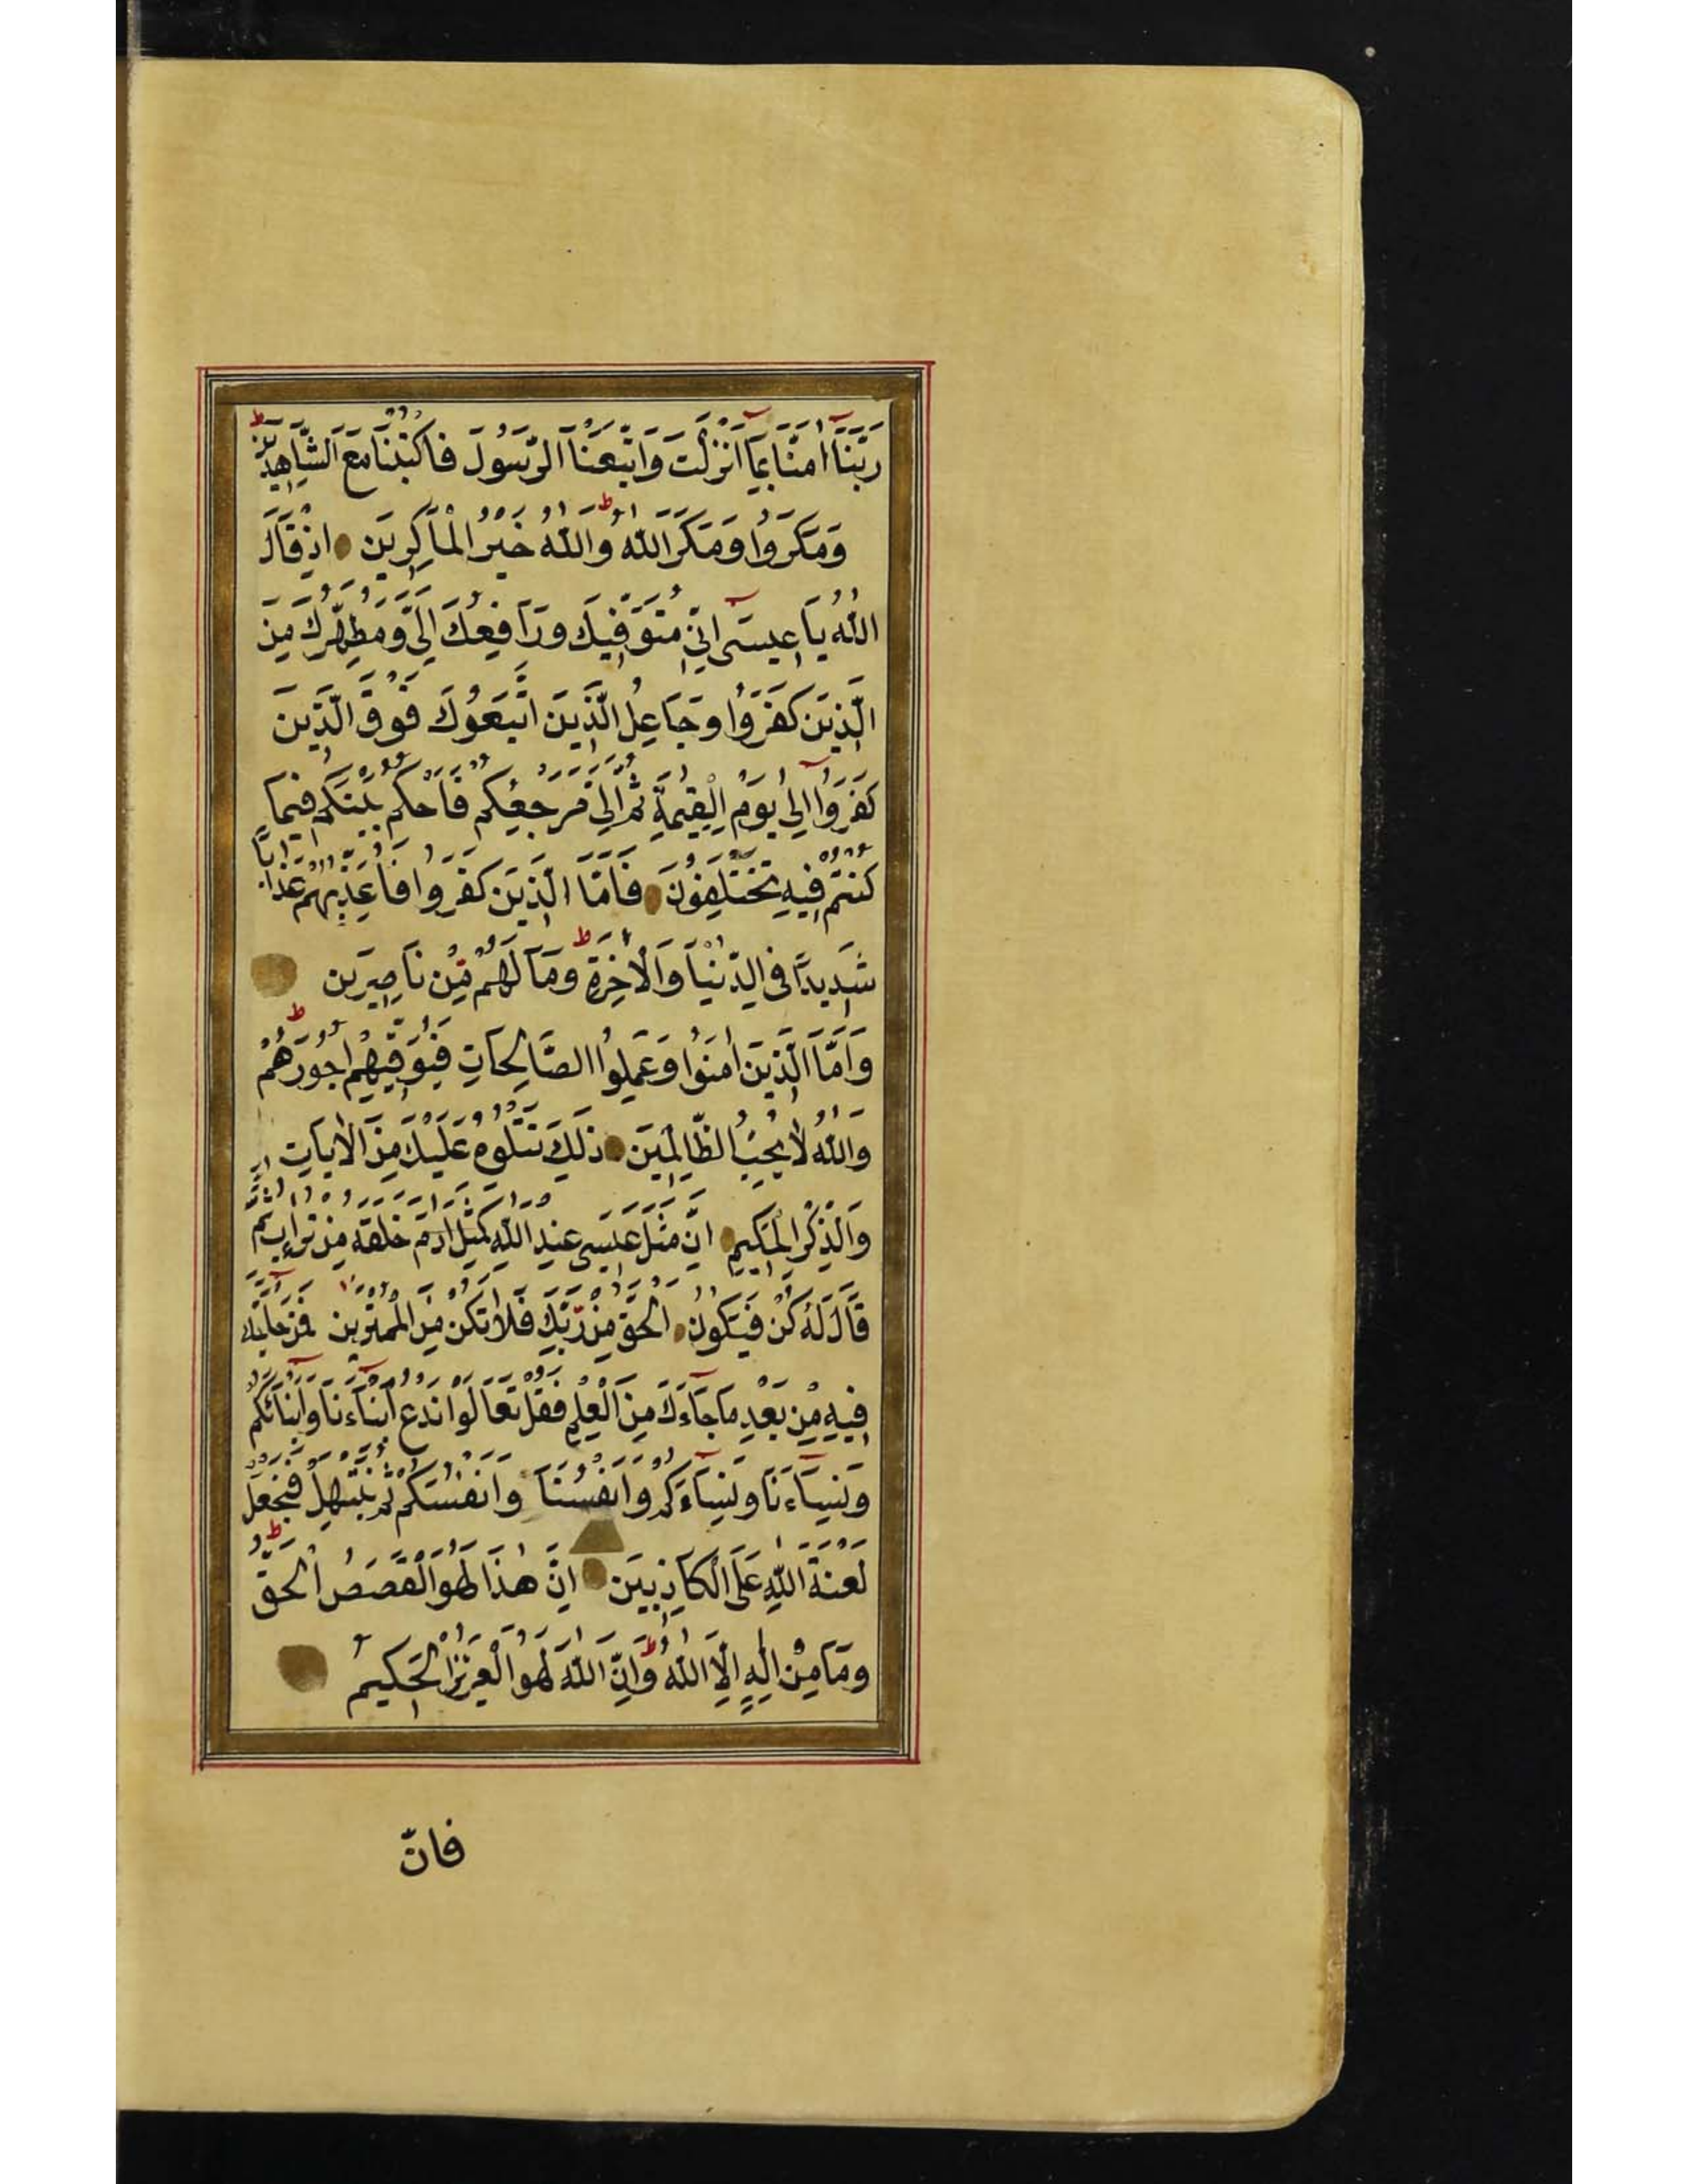 رَبَّنَا اٰمَنَّا بِمَا اَنْزَلْتَ وَاتَّبَعْنَا الرَّسُولَ فَاكْتُبْنَا مَعَ الشَّاهِدِينَ ط
وَمَكَرُوا وَمَكَرَ اللّٰهُ ط وَاللّٰهُ خَيْرُ الْمَاكِرِينَ اِذْ قَالَ
اللّٰهُ يَا عِيسَى اِنِّي مُتَوَفِّيكَ وَرَافِعُكَ اِلَيَّ وَمُطَهِّرُكَ مِنَ
الَّذِينَ كَفَرُوا وَجَاعِلُ الَّذِينَ اتَّبَعُوكَ فَوْقَ الَّذِينَ
كَفَرُوا اِلٰى يَوْمِ الْقِيٰمَةِ ثُمَّ اِلَيَّ مَرْجِعُكُمْ فَاَحْكُمُ بَيْنَكُمْ فِيمَا
كُنْتُمْ فِيهِ تَخْتَلِفُونَ فَاَمَّا الَّذِينَ كَفَرُوا فَاُعَذِّبُهُمْ عَذَابًا
شَدِيدًا فِي الدُّنْيَا وَالْاٰخِرَةِ ط وَمَا لَهُمْ مِنْ نَاصِرِينَ
وَاَمَّا الَّذِينَ اٰمَنُوا وَعَمِلُوا الصَّالِحَاتِ فَيُوَفِّيهِمْ اُجُورَهُمْ ط
وَاللّٰهُ لَا يُحِبُّ الظَّالِمِينَ ذٰلِكَ نَتْلُوهُ عَلَيْكَ مِنَ الْاٰيَاتِ
وَالذِّكْرِ الْحَكِيمِ اِنَّ مَثَلَ عِيسَى عِنْدَ اللّٰهِ كَمَثَلِ اٰدَمَ خَلَقَهُ مِنْ تُرَابٍ ثُمَّ
قَالَ لَهُ كُنْ فَيَكُونُ اَلْحَقُّ مِنْ رَبِّكَ فَلَا تَكُنْ مِنَ الْمُمْتَرِينَ فَمَنْ حَاجَّكَ
فِيهِ مِنْ بَعْدِ مَا جَاءَكَ مِنَ الْعِلْمِ فَقُلْ تَعَالَوْا نَدْعُ اَبْنَاءَنَا وَاَبْنَائَكُمْ
وَنِسَاءَنَا وَنِسَاءَكُمْ وَاَنْفُسَنَا وَاَنْفُسَكُمْ ثُمَّ نَبْتَهِلْ فَنَجْعَلْ
لَعْنَةَ اللّٰهِ عَلَى الْكَاذِبِينَ اِنَّ هٰذَا لَهُوَ الْقَصَصُ الْحَقُّ ط
وَمَا مِنْ اِلٰهٍ اِلَّا اللّٰهُ ط وَاِنَّ اللّٰهَ لَهُوَ الْعَزِيزُ الْحَكِيمُ
فَانّ